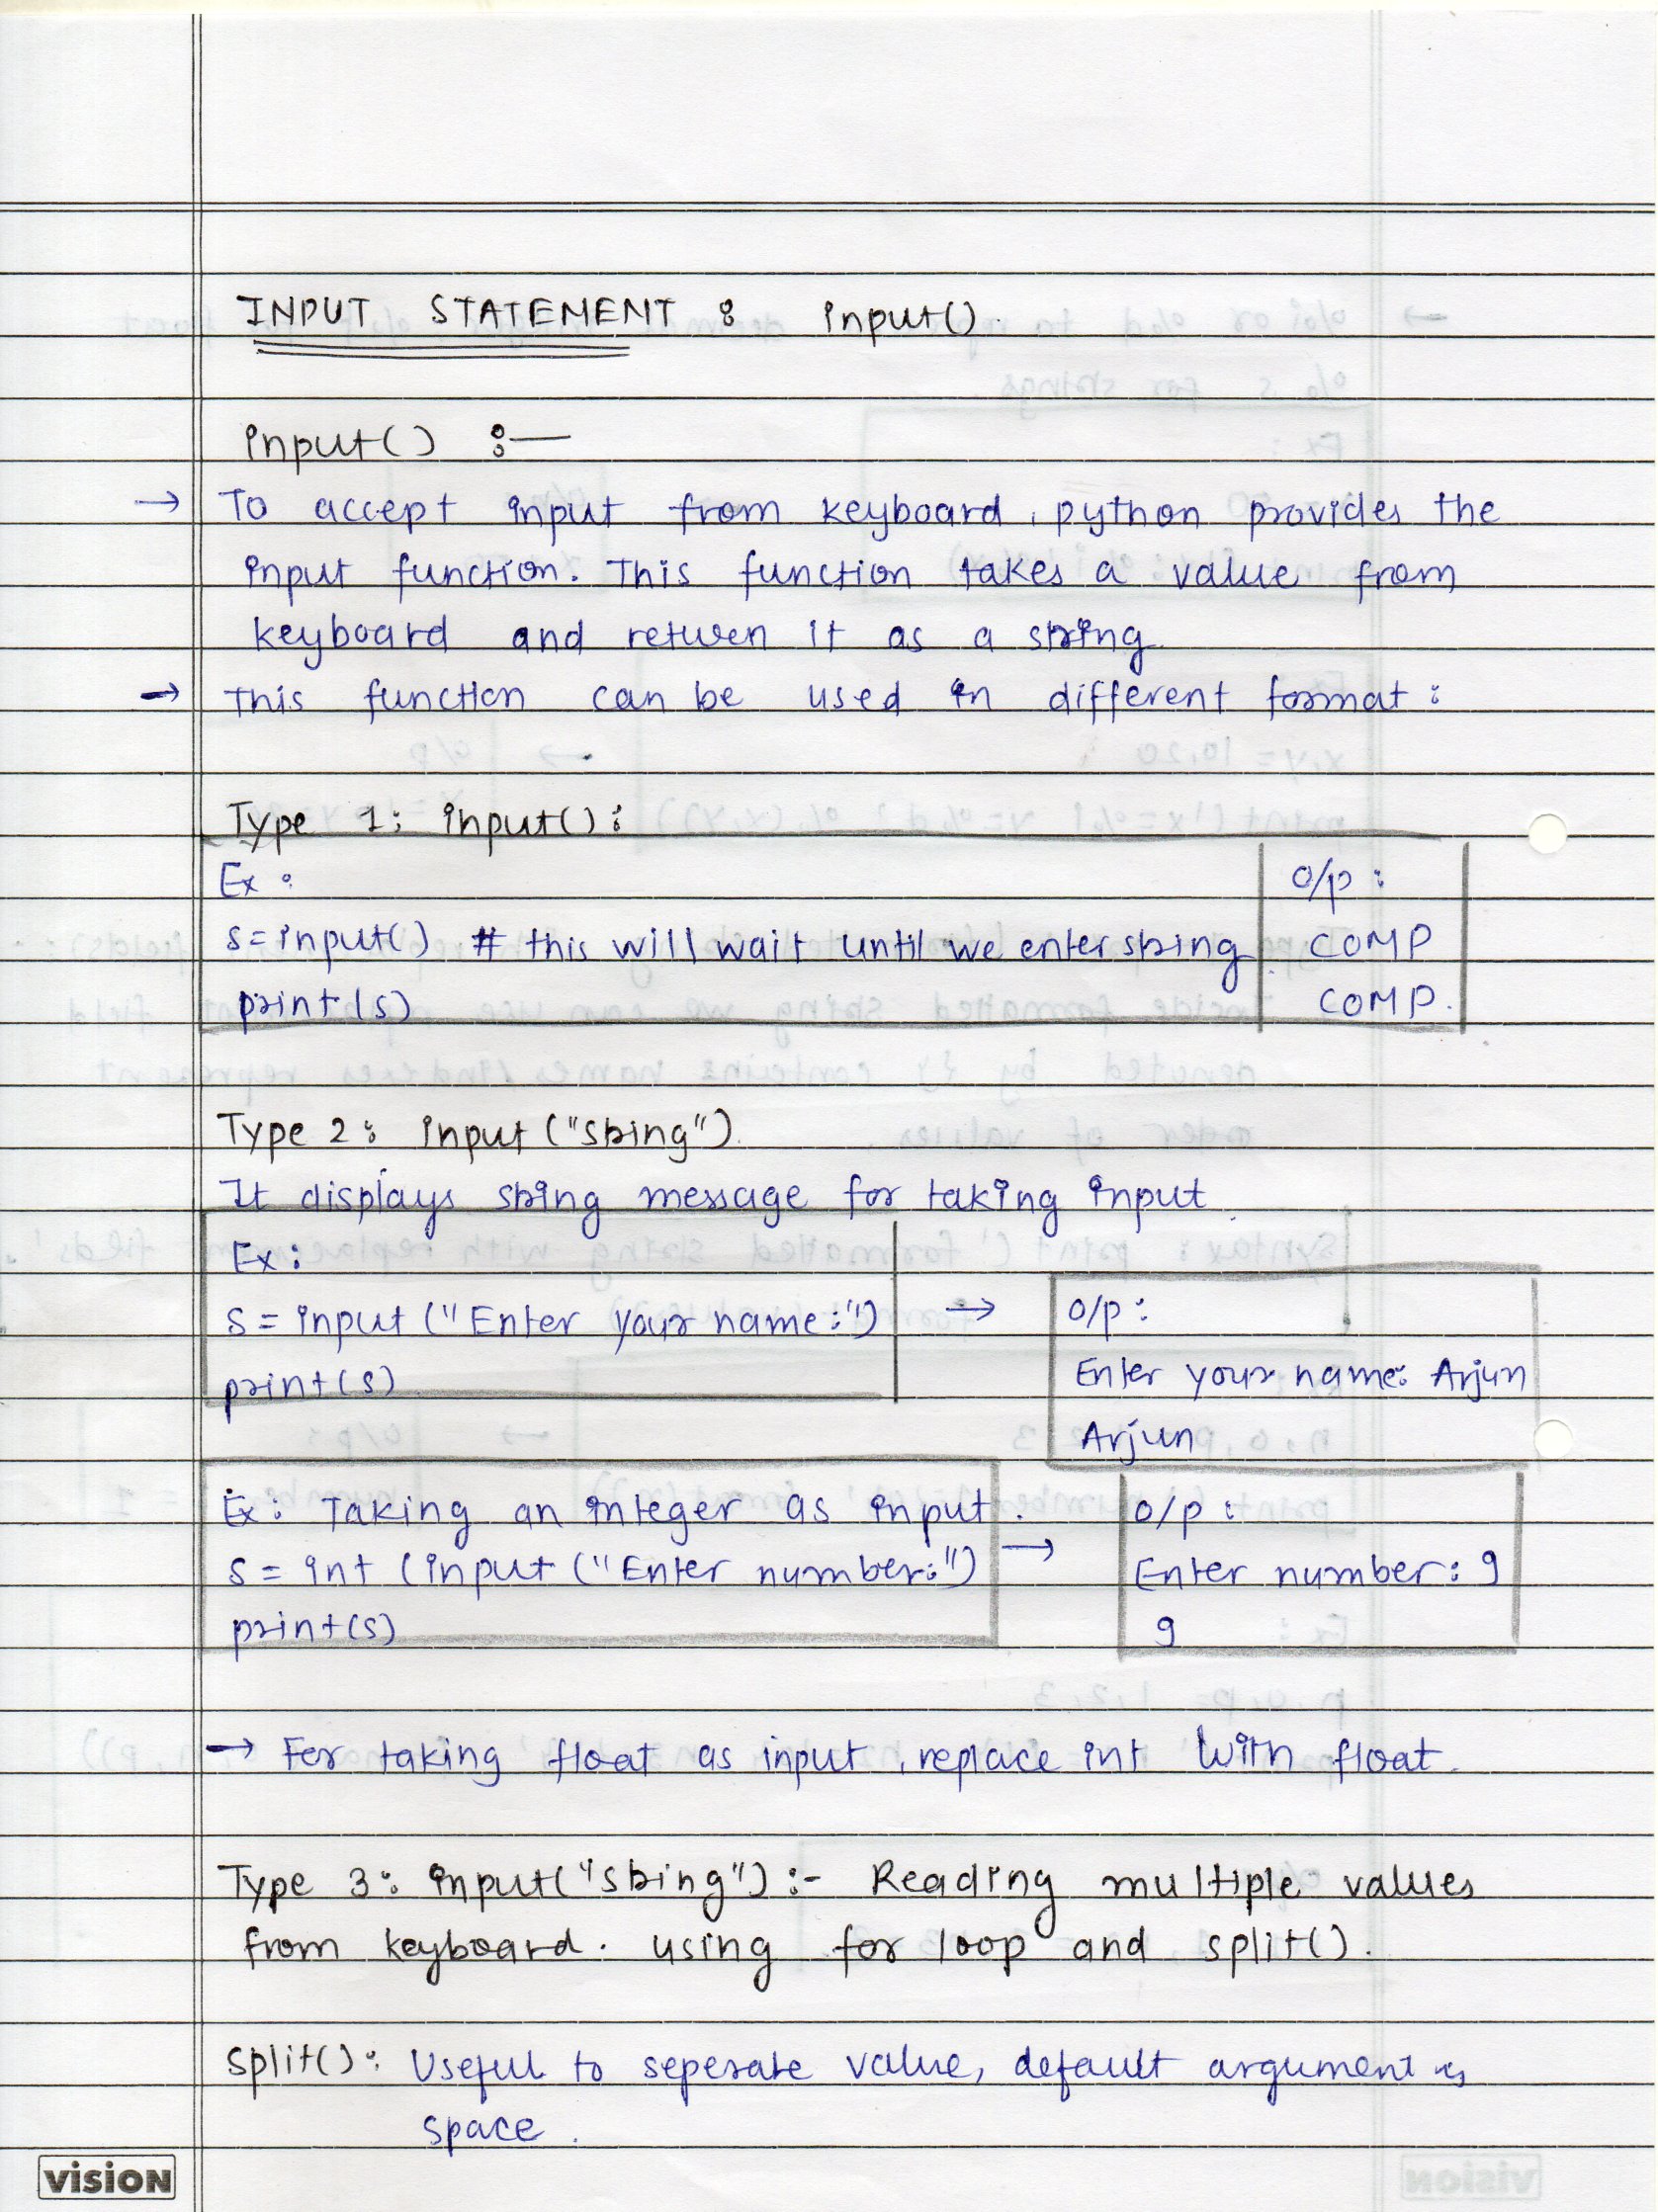 INPUT STATEMENT : input().
input() :—
→ To accept input from keyboard, python provides the
input function. This function takes a value from
keyboard and return it as a string.
→ This function can be used in different format :
Type 1: input() :
Ex :
s=input() # this will wait until we enter string.
print(s)
O/p :
COMP
COMP.
Type 2 : input ("string").
It displays string message for taking input.
Ex :
s = input ("Enter your name:")
print(s)
→
O/p :
Enter your name: Arjun
Arjun
Ex : Taking an integer as input.
s = int (input ("Enter number:")
print(s)
→
O/p :
Enter number: 9
9
→ For taking float as input, replace int with float.
Type 3: input("string") :- Reading multiple values
from keyboard. using for loop and split().
split() : Useful to seperate value, default argument is
space.
vision